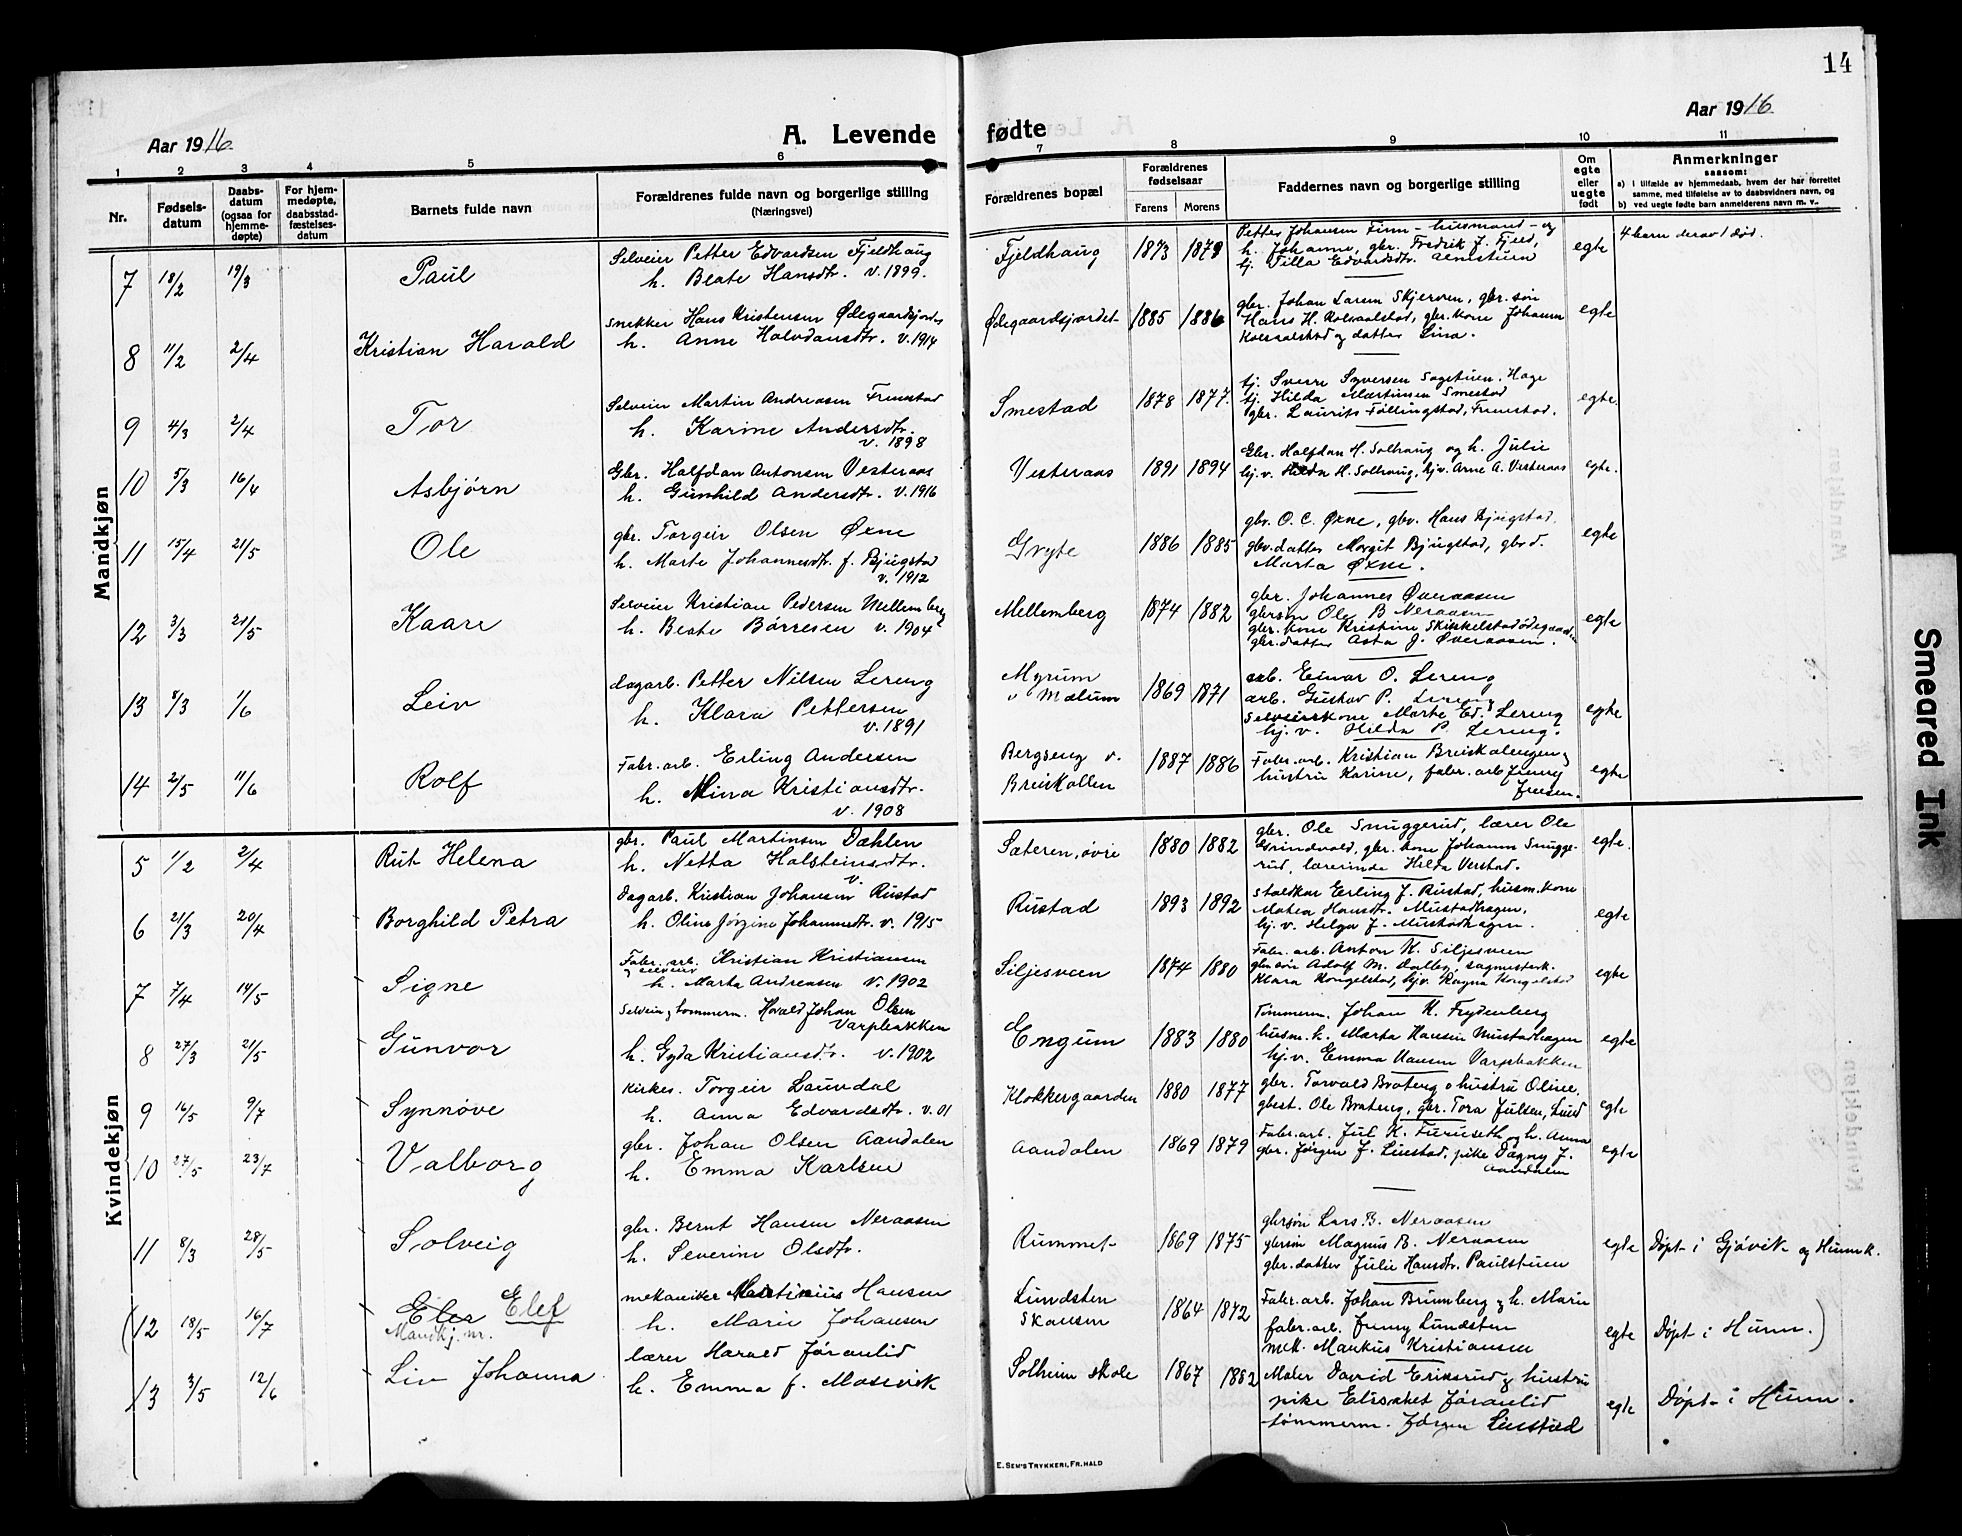 14
Aar 1916.
A. Levende fødte
Aar 1916.
1 2 3 4 5 6 7 8 9 10 11
Nr.
Fødsels-
datum
Daabs-
datum
(ogsaa for
hjemme-
døpte)
For hjem-
medøpte,
daabsstad-
fæstelses-
datum
Barnets fulde navn
Forældrenes fulde navn og borgerlige stilling
(Næringsvei)
Forældrenes bopæl
Forældrenes
fødselsaar
Farens Morens
Faddernes navn og borgerlige stilling
Om
egte
eller
uegte
født
Anmerkninger
saasom:
a) i tilfælde av hjemmedaab, hvem der har forrettet
samme, med tilføielse av to daabsvidners navn, og
b) ved uegte fødte barn anmelderens navn m. v.
Mandkjøn
7 18/2 19/3 Paul
Selveier Petter Edvardsen Fjeldhaug
h. Beate Hansdtr. v. 1899.
Fjeldhaug 1873 1879
Petter Johansen Finn - husmand - og
h. Johanne, gbr. Fredrik J. Fjeld,
tj. Tilla Edvardsdtr. Almestuen
egte
4 barn derav 1 død.
8 11/2 2/4 Kristian Harald
Snekker Hans Kristensen Ødegaardsjordet
h. Anne Halvdansdtr. v. 1914
Ødegaardsjordet 1885 1886
gbr. Johan Larsen Skjerven, gbr. søn
Hans H. Kolvaalstad, gbr. kone Johanne
Kolvaalstad og datter Lina.
egte
9 4/3 2/4 Tor
Selveier Martin Andreasen Frenstad
h. Karine Andersdtr.
v. 1898
Smestad 1878 1877.
tj. Sverre Syversen Sagstuen, Hage
tj. Hilda Martinsen Smestad
gbr. Laurits Føllingstad, Frenstad.
egte.
10 5/3 16/4 Asbjørn
Gbr. Halfdan Antonsen Vesteraas
h. Gunhild Andersdtr. v. 1916
Vesteraas 1891 1894
Gbr. Halfdan H. Solhaug og h. Julie
hj. v. Hilda H. Solhaug, hjv. Arne A. Vesteraas
egte.
11 15/4 21/5 Ole
gbr. Torgeir Olsen Øxne
h. Marte Johannesdtr. f. Bjugstad
v. 1912
Gryte 1886 1885
gbr. O. C. Øxne, gbr. Hans Bjugstad.
gbr. datter Margit Bjugstad, gbr d.
Marta Øxne.
egte
12 3/3 21/5 Kaare
Selveier Kristian Pedersen Mellemberg
h. Beate Børresen v. 1904
Mellemberg 1874 1882
gbr. Johannes Øveraasen
gbrsøn Ole B Neraasen
gbr. kone Kristine Skikkelstadødegaarden
gbr. datter Asta J. Øveraasen.
egte
13 8/3 1/6 Leiv
dagarb. Petter Nilsen Lereng
h. Klara Pettersen
v. 1891
Myrum
v Mælum 1869 1871
arb. Einar O. Lereng
arb. Gustav P. Lereng
Selveierskone Marte Ed. Lereng
hj. v. Hilda P. Lereng.
egte
14 2/5 11/6 Rolf
Fabr. arb. Erling Andersen
h. Mina Kristiansdtr.
v. 1908
Bergseng v.
Breiskallen 1887 1886
Fabr. arb. Kristian Breiskalengen og
hustru Karine, fabr. arb Jenny
Juesen.
egte
Kvindekjøn
5 1/2 2/4 Rut Helena
gbr. Paul Martinsen Dæhlen
h. Netta Halsteinsdtr.
Sæteren, øvre 1880 1882
gbr. Ole Snuggerud, lærer Ole
Grindvold, gbr. kone Johanne Snugge-
rud, lærerinde Hilda Verstad.
egte.
6 21/3 20/4 Borghild Petra
Dagarb. Kristian Johansen v. Rustad
h. Oline Jørgine Johannesdtr. v. 1915
Rustad 1893 1892
Staldkar Erling J. Rustad, husm. kone
Matea Hansdtr. Mustadhagen,
hj. v. Helga J. Mustadhagen.
egte
7 7/4 14/5 Signe
Fabr. arb. Kristian Kristiansen
og selveier
h. Marta Andreasen v. 1902
Siljesveen 1874 1880
Fabr. arb. Anton K. Siljesveen
gbr. søn Adolf M. Dalby, sagmesterk.
Klara Kongelstad, hjv. Ragna Kongelstad
egte
8 27/3 21/5 Gunvor
Selveier og tømmerm. Harald Johan Olsen
Varpbakken
h. Gyda Kristiansdtr. v. 1902
Engum 1883 1880
Tømmerm. Johan K. Frydenberg
husm. k. Marta Hansen Mustadhagen
hj. v. Emma Hansen Varpbakken
egte
9 16/5 9/7 Synnøve
Kirkes. Torgeir Laundal
h. Anna Edvardsdtr. v. 01
Klokkergaarden 1880 1877
gbr. Torvald Brateng o hustru Oline,
gbest. Ole Brateng, gbr. Tora Julsen, Lund
egte
10 27/5 23/7 Valborg
gbr. Johan Olsen Aandalen
h. Emma Karlsen
Aandalen 1869 1879
Fabr. arb. Jul K. Furuseth og h. Anna
gbr. Jørgen J. Linstad, pike Dagny J.
Aandalen
egte
11 8/3 28/5 Solveig
gbr. Bernt Hansen Neraasen
h. Severine Olsdtr.
Rummet 1869 1875
gbrsøn Lars B. Neraasen
gbrsøn Magnus B. Neraasen
gbr. datter Julie Hansdtr. Paulstuen
egte
Døpt i Gjøvik og Hunn k.
(12 18/5 16/7 Eler Elef
Mandkj. nr.
mekaniker Martinius Hansen
h. Marie Johansen
Lundsten
Skansen 1864 1872
Fabr. arb. Johan Brumberg og h. Marie
fabr. arb. Jenny Lundsten
mek. Markus Kristiansen
egte
Døpt i Hunn.)
13 3/5 12/6 Liv Johanna
lærer Harald Føranlid
h. Emma f. Mosevik
Solheim skole 1867 1882
Maler David Eriksrud og hustru
pike Elisabet Føranlid
tømmerm. Jørgen Linstad
egte
Døpt i Hunn.
E. SEM'S TRYKKERI, FR. HALD
Smeared Ink